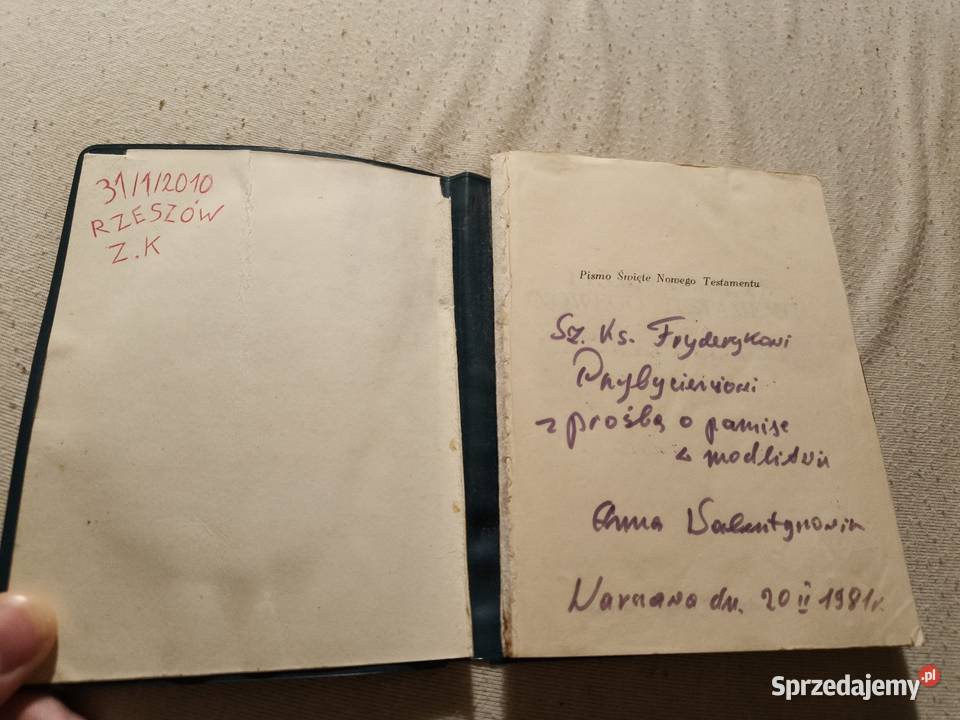 31/1/2010
RZESZÓW
Z.K
Pismo Święte Nowego Testamentu
Sz. Ks. Fryderykowi
Przybycieniowi
z prośbą o pamięć
w modlitwie
Anna Walentynowicz
Warszawa dn. 20 II 1981r.
Sprzedajemy.pl